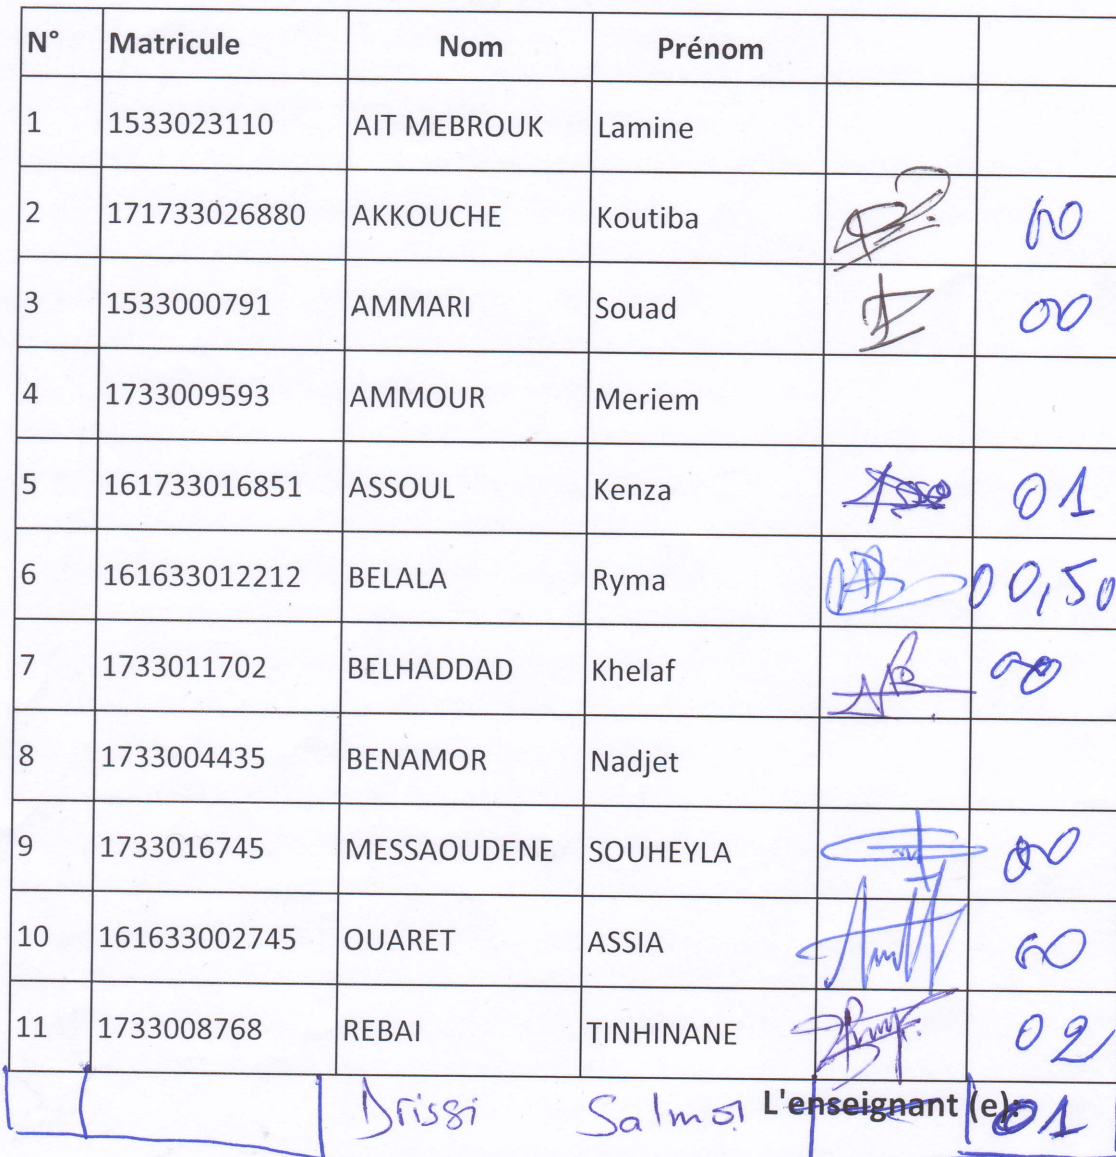 N° Matricule Nom Prénom
1 1533023110 AIT MEBROUK Lamine
2 171733026880 AKKOUCHE Koutiba 00
3 1533000791 AMMARI Souad 00
4 1733009593 AMMOUR Meriem
5 161733016851 ASSOUL Kenza 01
6 161633012212 BELALA Ryma 00,50
7 1733011702 BELHADDAD Khelaf 00
8 1733004435 BENAMOR Nadjet
9 1733016745 MESSAOUDENE SOUHEYLA 00
10 161633002745 OUARET ASSIA 00
11 1733008768 REBAI TINHINANE 02
Drissi Salma L'enseignant (e): 01